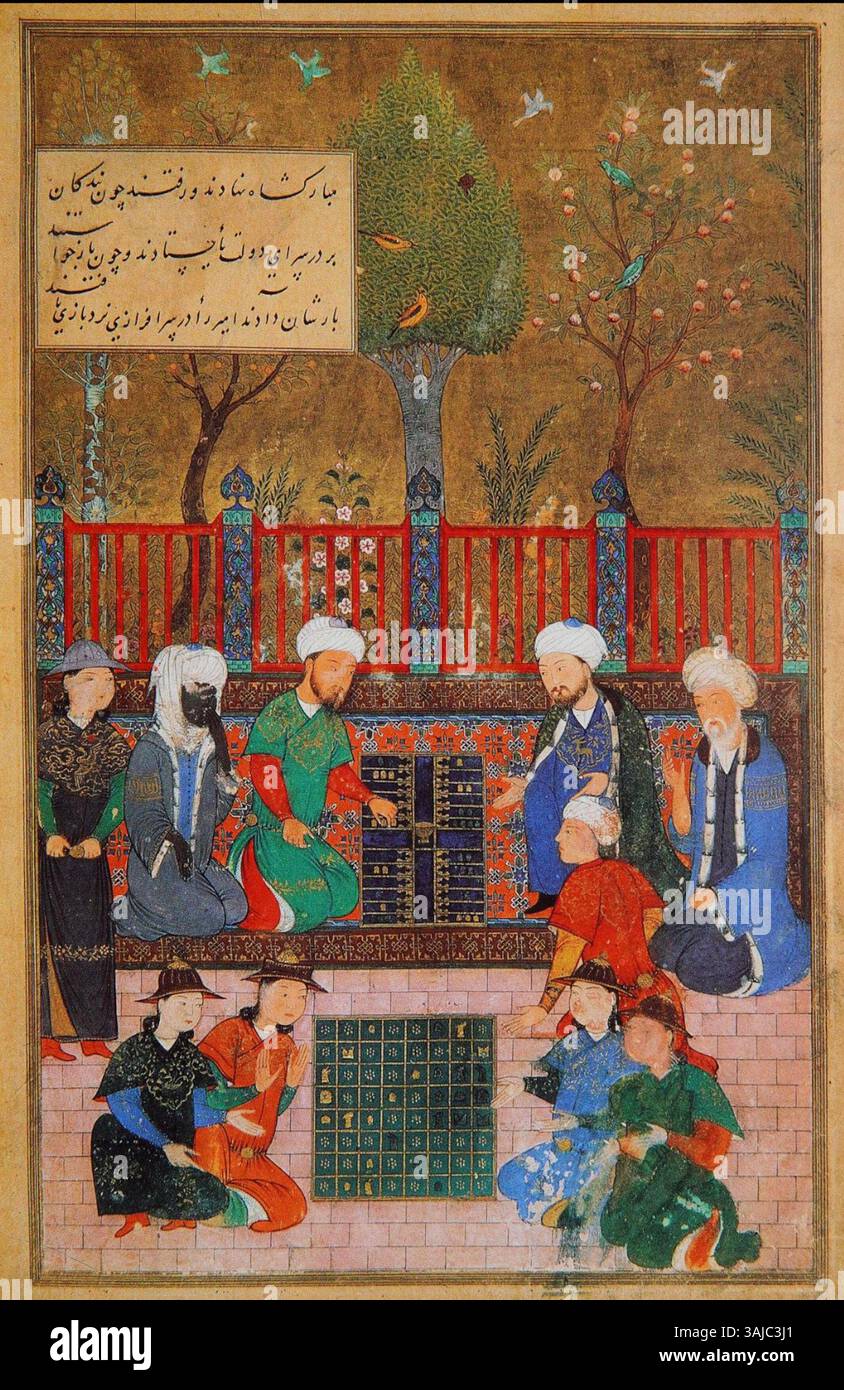 مبارکشاه نهادند و رفتند چون بندگان
بر در سرای دولت بأیستادند و چون بار خواستند
بارشان دادند امیر را در سرافرازی نرد بازی با
alamy
Image ID: 3AJC3J1
www.alamy.com